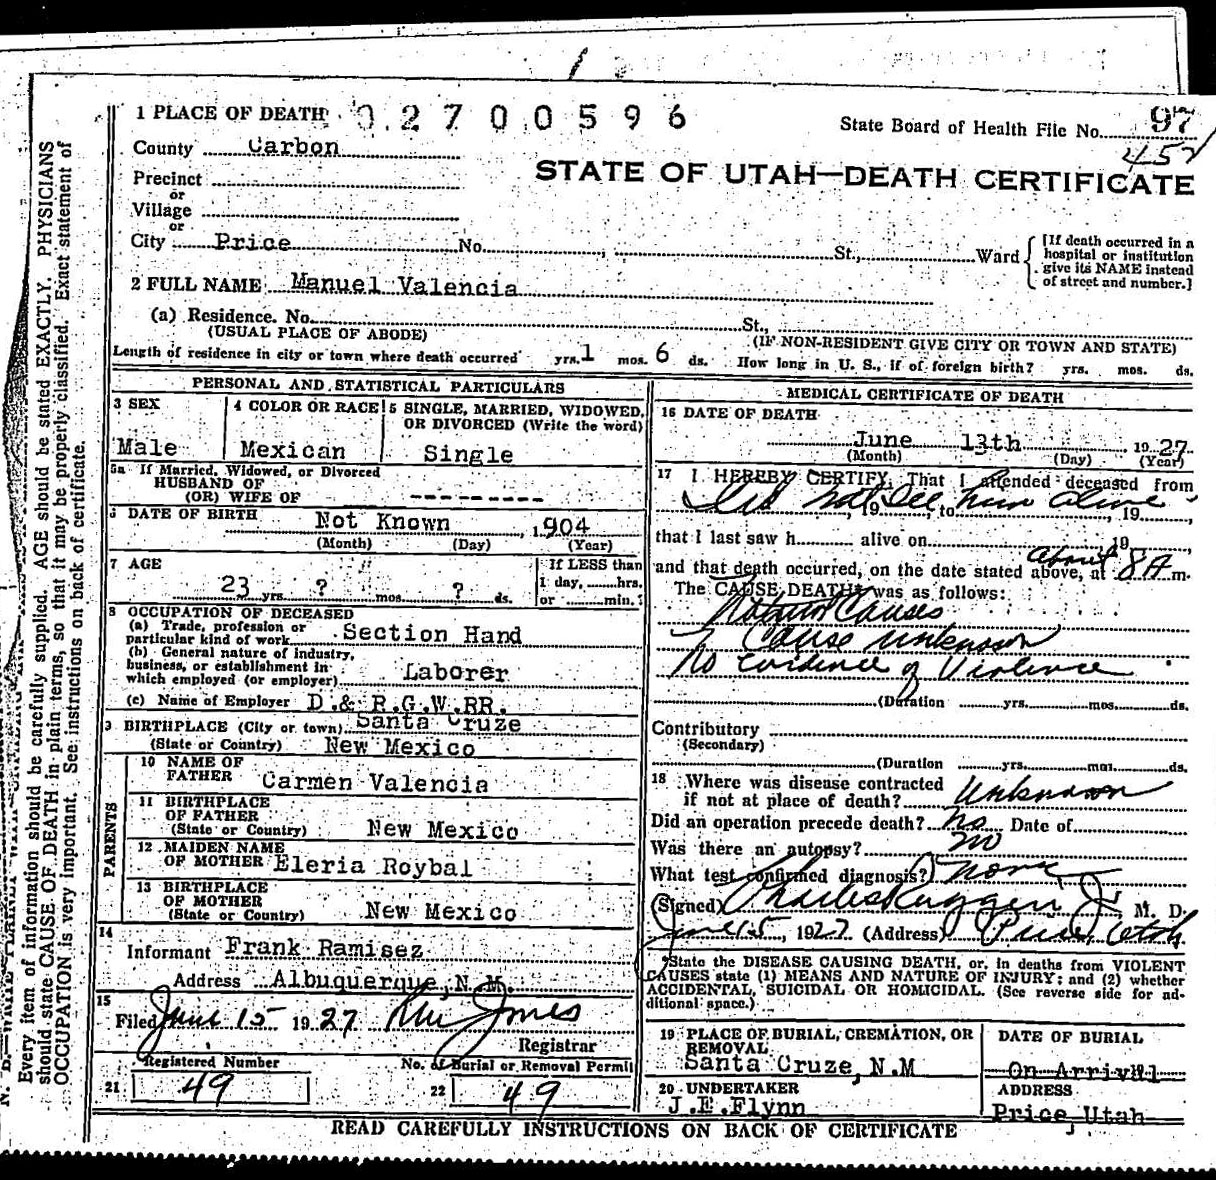 1 PLACE OF DEATH 0 2 7 0 0 5 9 6
State Board of Health File No. 97
452
County Carbon
STATE OF UTAH—DEATH CERTIFICATE
Precinct
or
Village
or
City Price No. St., Ward
[If death occurred in a
hospital or institution
give its NAME instead
of street and number.]
2 FULL NAME Manuel Valencia
(a) Residence. No. St.,
(USUAL PLACE OF ABODE) (IF NON-RESIDENT GIVE CITY OR TOWN AND STATE)
Length of residence in city or town where death occurred yrs. 1 mos. 6 ds. How long in U. S., if of foreign birth? yrs. mos. ds.
PERSONAL AND STATISTICAL PARTICULARS
3 SEX 4 COLOR OR RACE 5 SINGLE, MARRIED, WIDOWED,
OR DIVORCED (Write the word)
Male Mexican Single
5a If Married, Widowed, or Divorced
HUSBAND OF
(OR) WIFE OF ---------
6 DATE OF BIRTH Not Known 1904
(Month) (Day) (Year)
7 AGE If LESS than
23 yrs. ? mos. ? ds. 1 day, hrs.
or min.
8 OCCUPATION OF DECEASED
(a) Trade, profession or
particular kind of work Section Hand
(b) General nature of industry,
business, or establishment in
which employed (or employer) Laborer
(c) Name of Employer D.& R.G.W.RR.
9 BIRTHPLACE (City or town) Santa Cruze
(State or Country) New Mexico
PARENTS
10 NAME OF
FATHER Carmen Valencia
11 BIRTHPLACE
OF FATHER
(State or Country) New Mexico
12 MAIDEN NAME
OF MOTHER Eleria Roybal
13 BIRTHPLACE
OF MOTHER
(State or Country) New Mexico
14
Informant Frank Ramisez
Address Albuquerque, N.M.
15
Filed June 15 1927 Jones
Registrar
Registered Number No. of Burial or Removal Permit
21 49 22 49
MEDICAL CERTIFICATE OF DEATH
16 DATE OF DEATH
June 13th 1927
(Month) (Day) (Year)
17 I HEREBY CERTIFY, That I attended deceased from
Did not See, 19 to him alive, 19
that I last saw h alive on 19
and that death occurred, on the date stated above, at about 8 A m.
The CAUSE DEATH was as follows:
Natural Causes
Cause unknown
No evidence of Violence
(Duration yrs. mos. ds.
Contributory
(Secondary)
(Duration yrs. mos. ds.
18 Where was disease contracted
if not at place of death? Unknown
Did an operation precede death? no Date of
Was there an autopsy? no
What test confirmed diagnosis? none
(Signed) Charles Ruggeri Jr M. D.
June 15, 1927 (Address) Price, Utah
*State the DISEASE CAUSING DEATH, or, in deaths from VIOLENT
CAUSES state (1) MEANS AND NATURE OF INJURY; and (2) whether
ACCIDENTAL, SUICIDAL OR HOMICIDAL. (See reverse side for ad-
ditional space.)
19 PLACE OF BURIAL, CREMATION, OR
REMOVAL DATE OF BURIAL
Santa Cruze, N.M On Arrival
20 UNDERTAKER ADDRESS
J.E.Flynn Price, Utah
READ CAREFULLY INSTRUCTIONS ON BACK OF CERTIFICATE
Every item of information should be carefully supplied. AGE should be stated EXACTLY. PHYSICIANS
should state CAUSE OF DEATH in plain terms, so that it may be properly classified. Exact statement of
OCCUPATION is very important. See instructions on back of certificate.